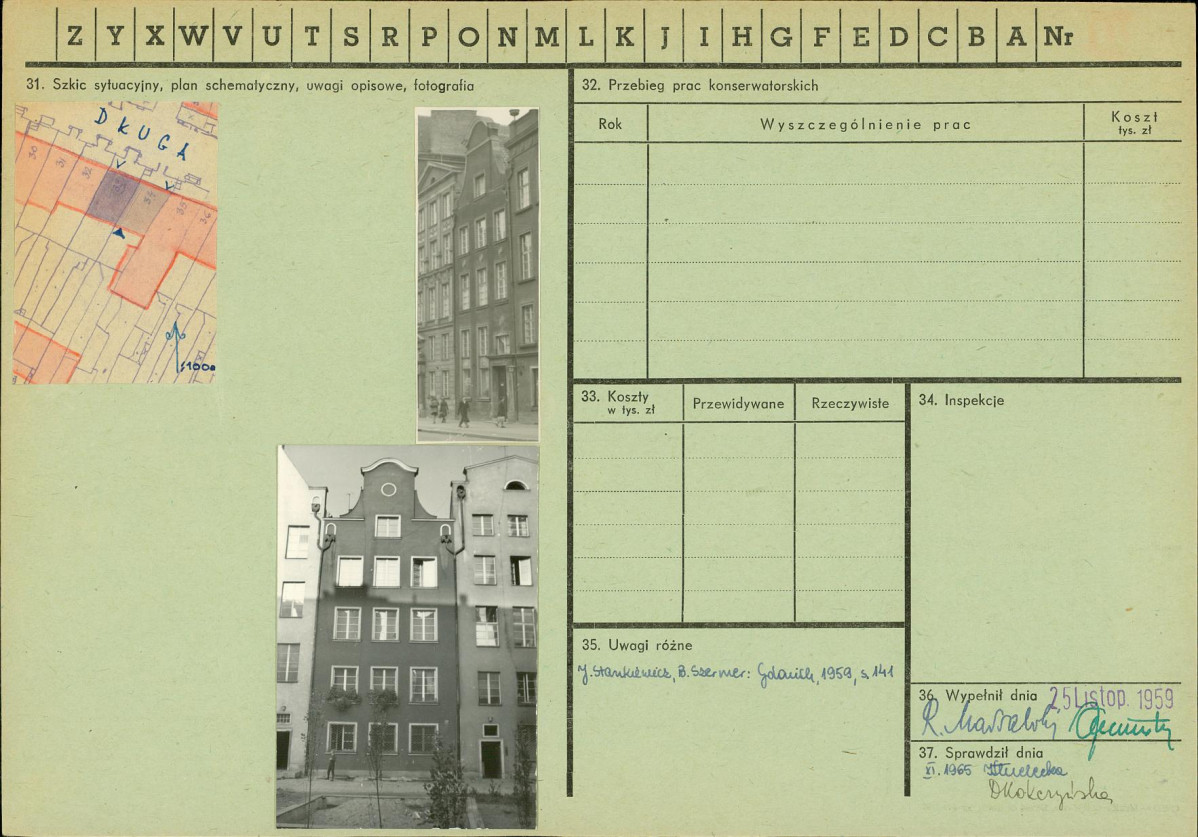 Z Y X W V U T S R P O N M L K J I H G F E D C B A Nr
31. Szkic sytuacyjny, plan schematyczny, uwagi opisowe, fotografia
DŁUGA
30 31 32 33 34 35 36
1:1000
32. Przebieg prac konserwatorskich
Rok Wyszczególnienie prac Koszt tys. zł
33. Koszty w tys. zł Przewidywane Rzeczywiste
34. Inspekcje
35. Uwagi różne
J. Stankiewicz, B. Szermer: Gdańsk, 1959, s. 141
36. Wypełnił dnia 25 Listop. 1959
37. Sprawdził dnia
XI. 1965